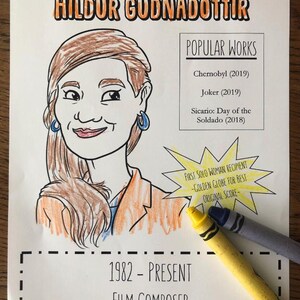 HILDUR GUDNADÓTTIR
POPULAR WORKS
Chernobyl (2019)
Joker (2019)
Sicario: Day of the
Soldado (2018)
FIRST SOLO WOMAN RECIPIENT
-GOLDEN GLOBE FOR BEST
ORIGINAL SCORE-
1982 - PRESENT
FILM COMPOSER